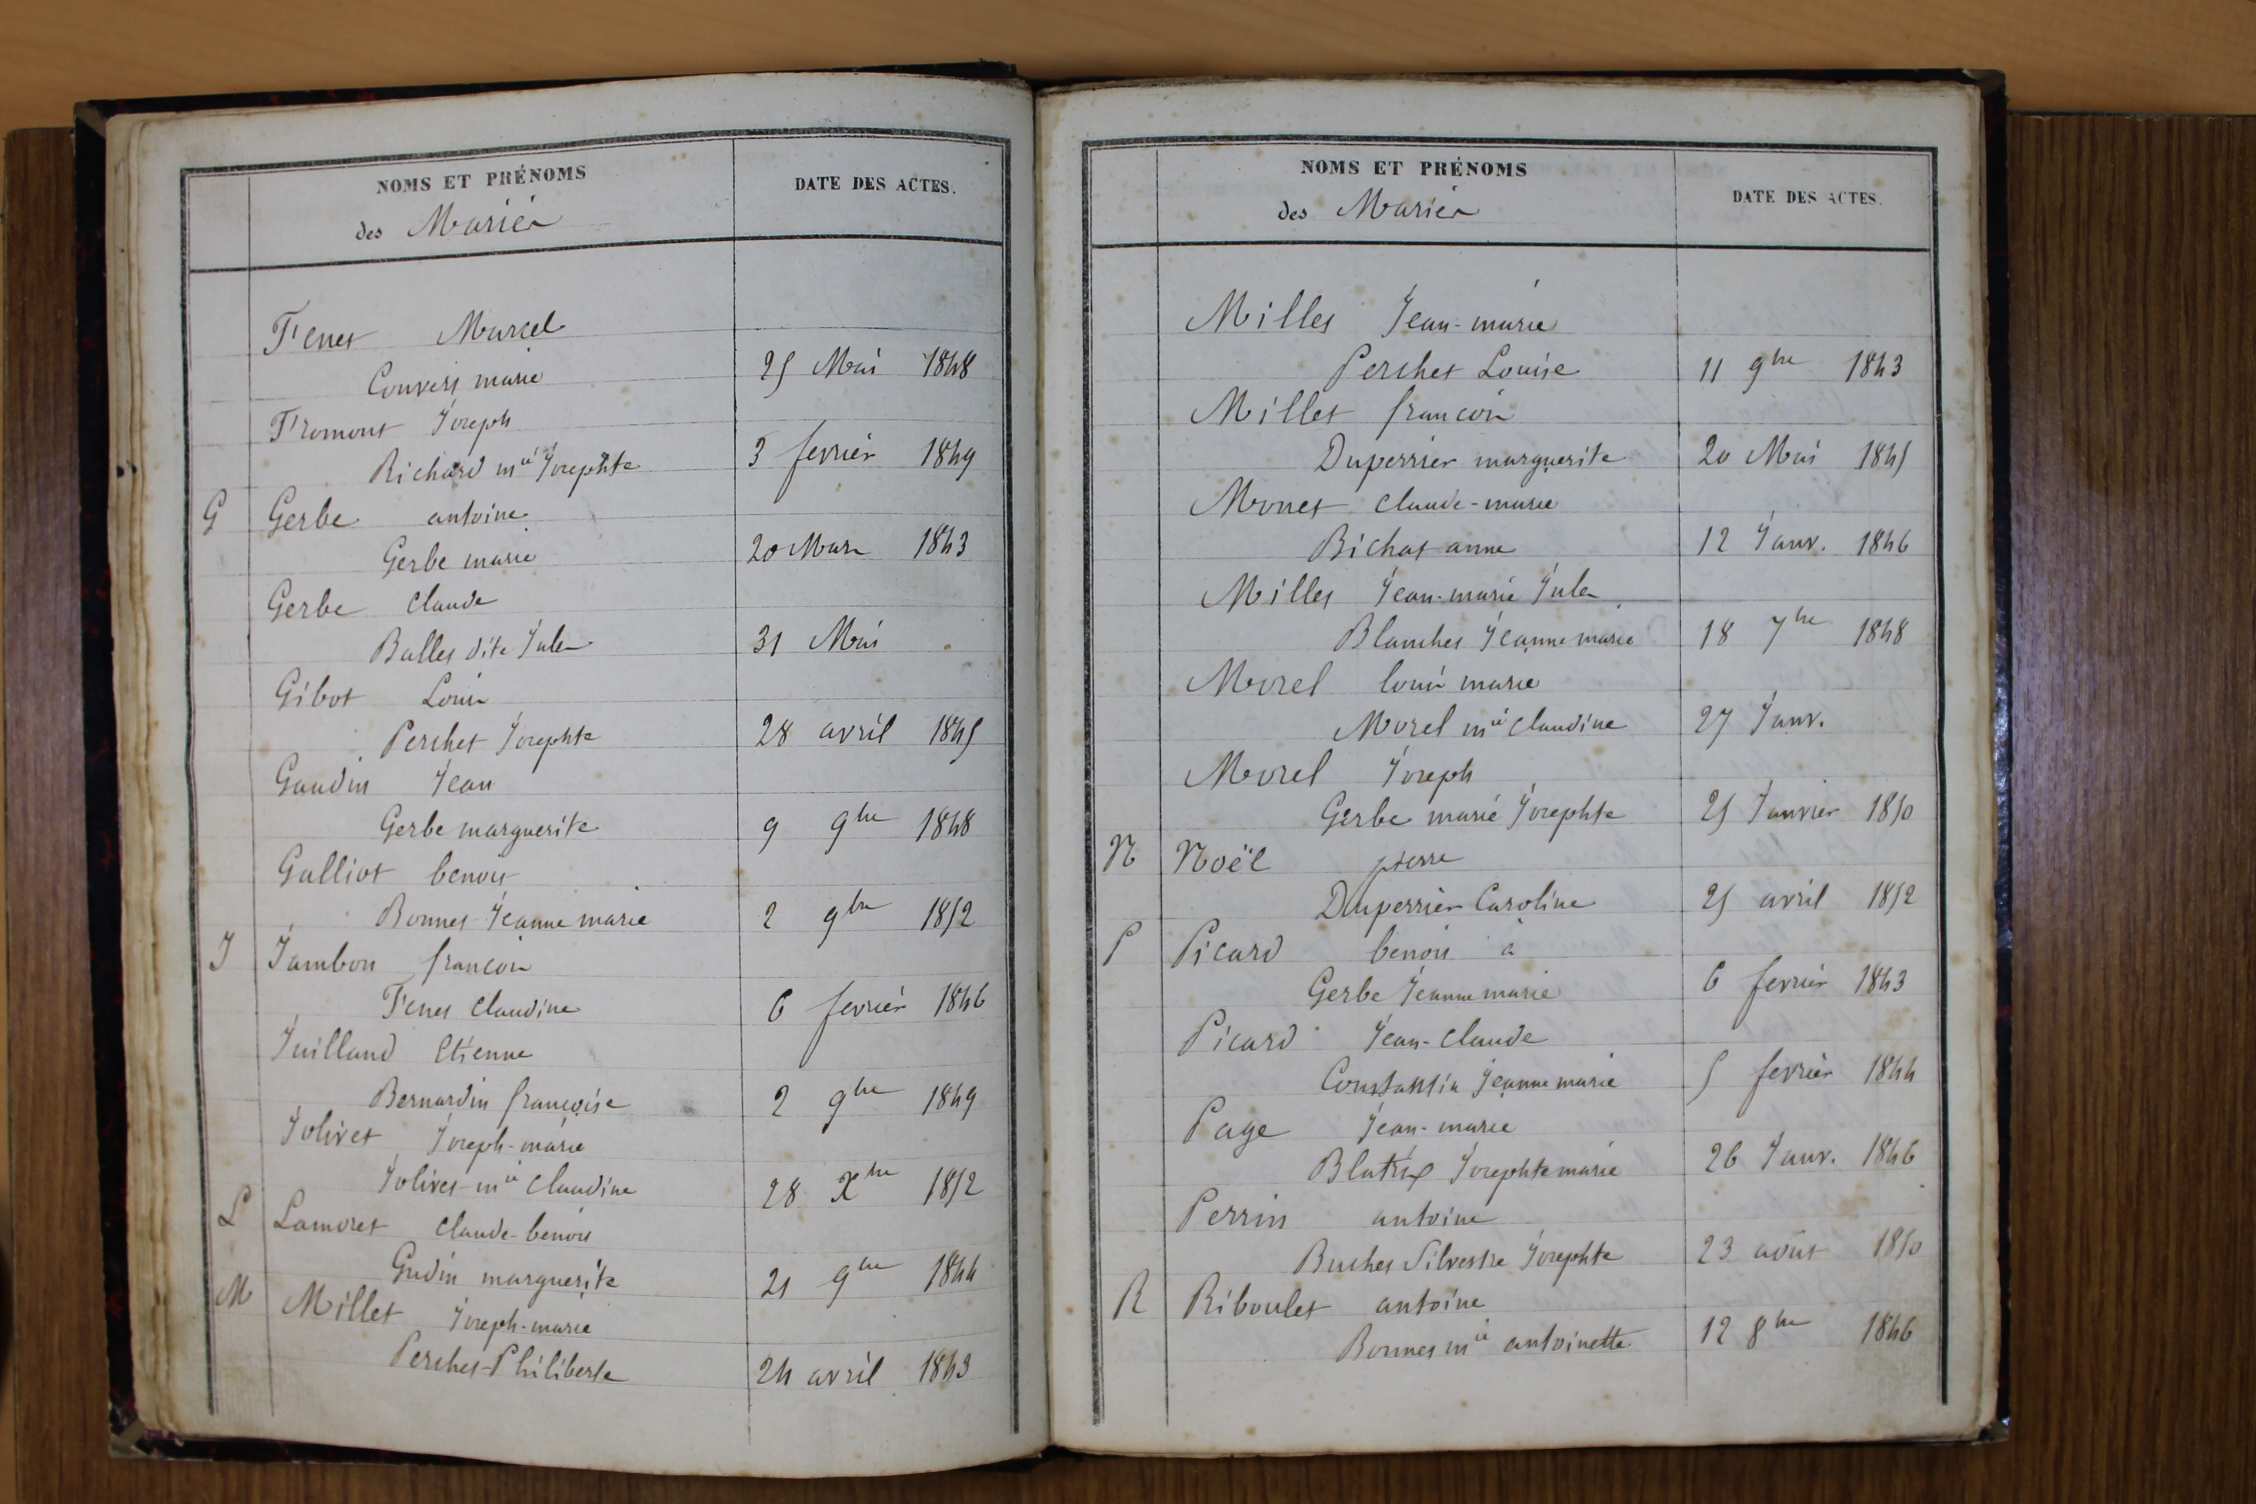 NOMS ET PRÉNOMS
DATE DES ACTES.
des Mariés
Fenet Marcel
Convers marie 25 Mai 1848
Fromont Joseph
Richard mie Josephte 3 fevrier 1849
G Gerbe antoine
Gerbe marie 20 Mars 1843
Gerbe Claude
Balley dite Jules 31 Mai
Gibot Louis
Perchet Josephte 28 avril 1845
Gaudin Jean
Gerbe marguerite 9 9bre 1848
Galliot benoit
Bonnet Jeanne marie 2 9bre 1852
J Jambon françois
Fenet Claudine 6 fevrier 1846
Juilland Etienne
Bernardin françoise 2 9bre 1849
Jolivet Joseph-marie
Jolivet mie Claudine 28 Xbre 1852
L Lamoret Claude-benoit
Gudin marguerite 21 9bre 1844
M Millet Joseph-marie
Perchet Philiberte 24 avril 1843
NOMS ET PRÉNOMS
DATE DES ACTES.
des Mariés
Millet Jean-marie
Perchet Louise 11 9bre 1843
Millet françois
Duperrier marguerite 20 Mai 1845
Monet Claude-marie
Bichat anne 12 Janv. 1846
Millet Jean-marie Jules
Blanchet Jeanne marie 18 7bre 1848
Morel Louis marie
Morel mie Claudine 27 Janv.
Morel Joseph
Gerbe marie Josephte 25 Janvier 1850
N Noël pierre
Duperrier Caroline 25 avril 1852
P Picard benoit à
Gerbe Jeanne marie 6 fevrier 1843
Picard Jean-Claude
Constantin Jeanne marie 5 fevrier 1844
Page Jean-marie
Blatrix Josephte marie 26 Janv. 1846
Perrin antoine
Buchet Silvestre Josephte 23 août 1850
R Riboulet antoine
Bonnet mie antoinette 12 8bre 1846